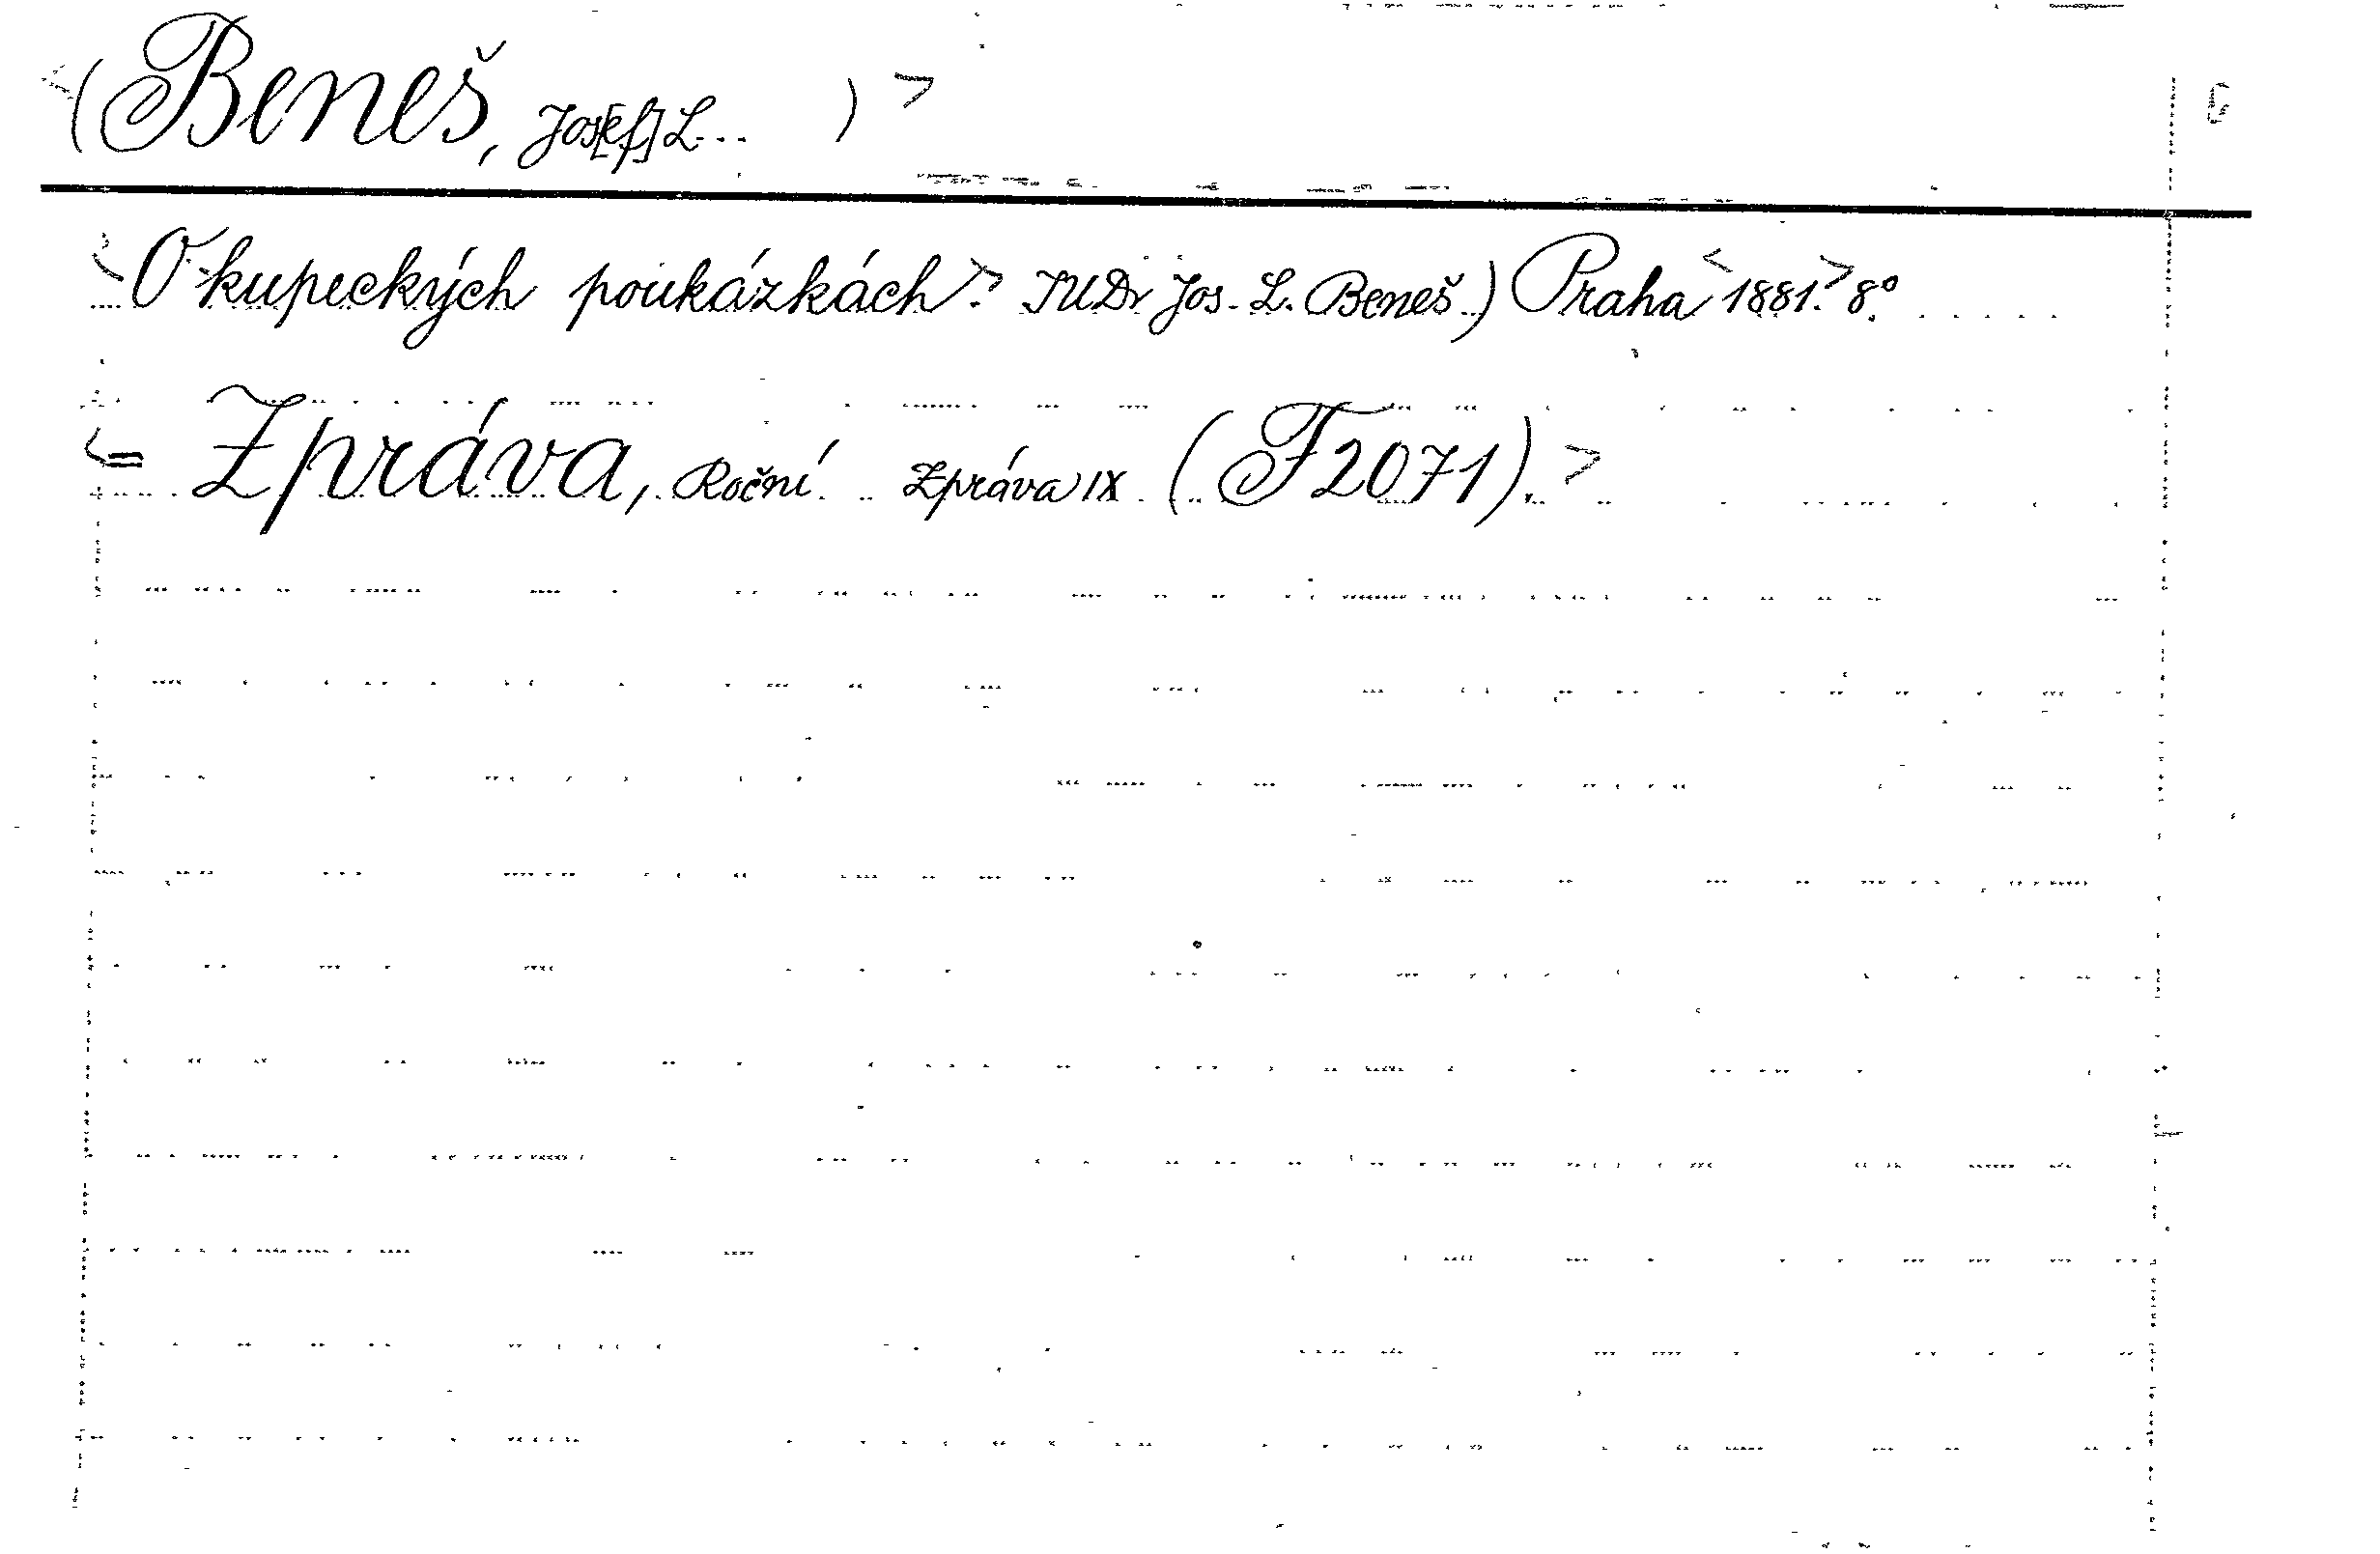 <(Beneš, Jos[ef] L... )>
<O kupeckých poukázkách>. JUDr Jos. L. Beneš.) Praha <1881.> 8.º
<= Zpráva, Roční Zpráva IX. (F 2071).>